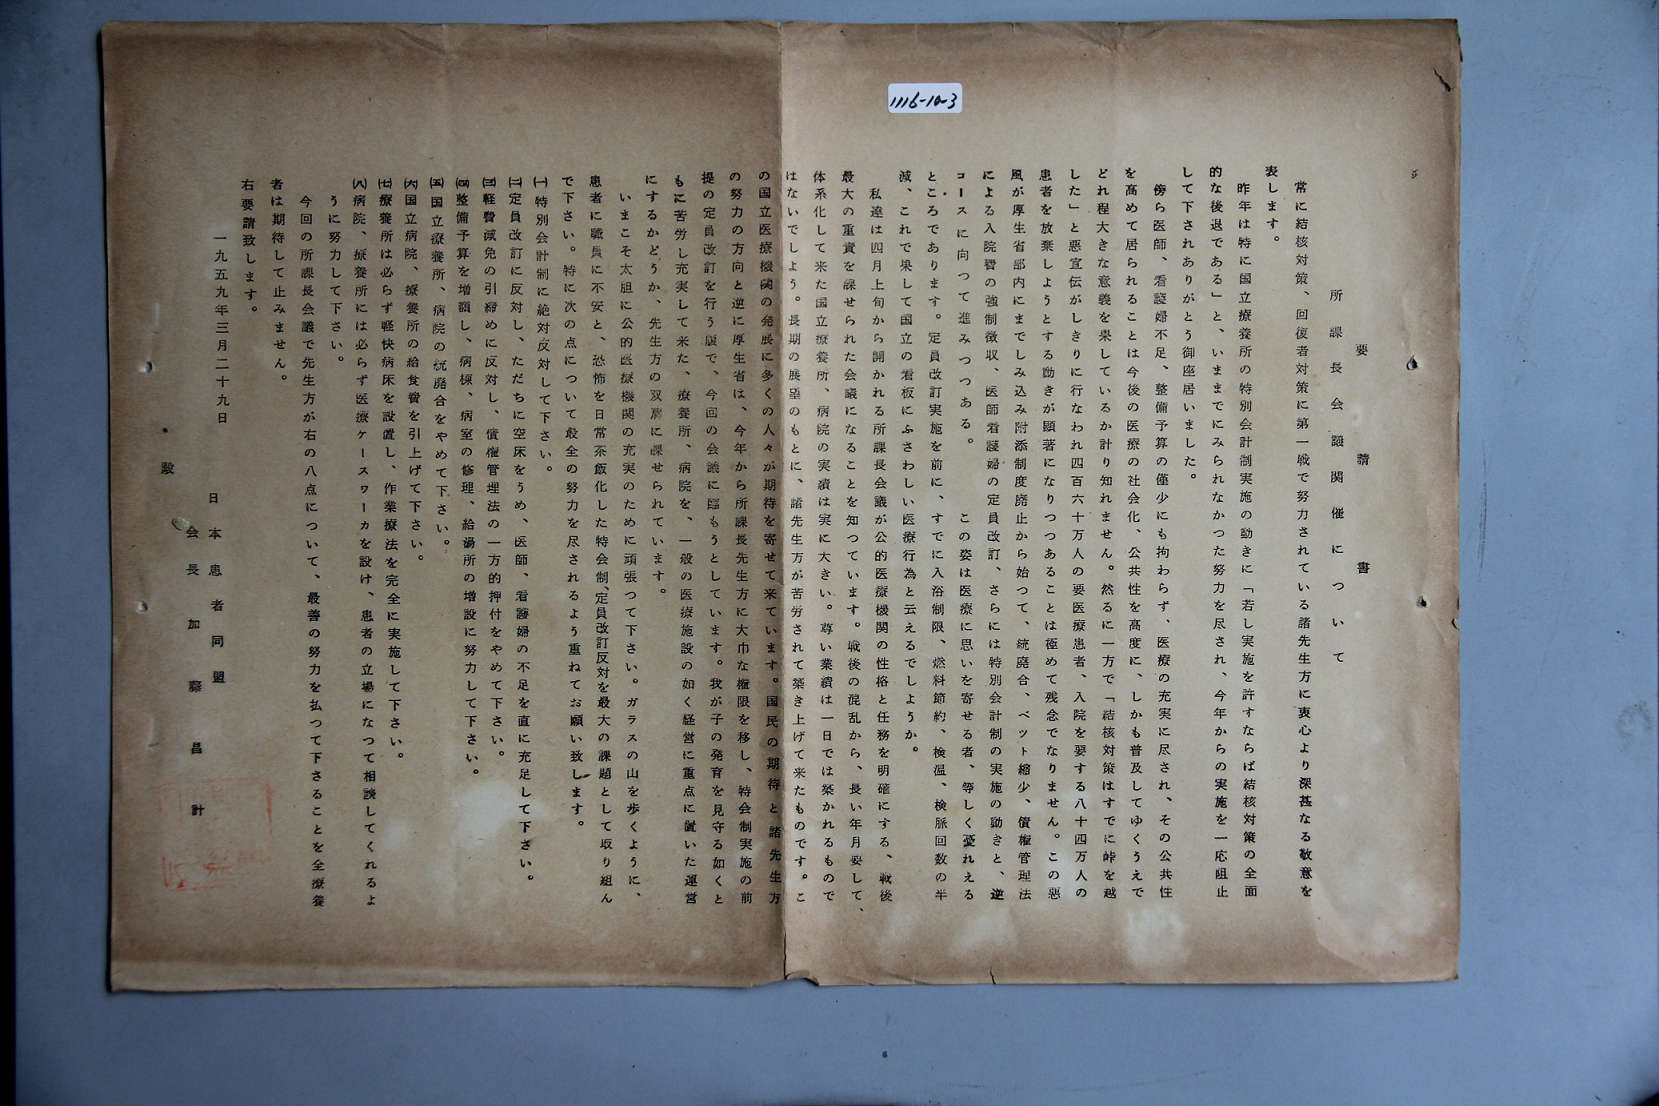 1116-10-3
要請書
所課長会議関催について
常に結核対策、回復者対策に第一戦で努力されている諸先生方に衷心より深甚なる敬意を
表します。
昨年は特に国立療養所の特別会計制実施の動きに「若し実施を許すならば結核対策の全面
的な後退である」と、いままでにみられなかつた努力を尽され、今年からの実施を一応阻止
して下されありがとう御座居いました。
傍ら医師、看護婦不足、整備予算の僅少にも拘わらず、医療の充実に尽され、その公共性
を高めて居られることは今後の医療の社会化、公共性を高度に、しかも普及してゆくうえで
どれ程大きな意義を果しているか計り知れません。然るに一方で「結核対策はすでに峠を越
した」と悪宣伝がしきりに行なわれ四百六十万人の要医療患者、入院を要する八十四万人の
患者を放棄しようとする動きが顕著になりつつあることは極めて残念でなりません。この悪
風が厚生省部内にまでしみ込み附添制度廃止から始つて、統廃合、ベット縮少、債権管理法
による入院費の強制徴収、医師看護婦の定員改訂、さらには特別会計制の実施の動きと、逆
コースに向つて進みつつある。 この姿は医療に思いを寄せる者、等しく憂れえる
ところであります。定員改訂実施を前に、すでに入浴制限、燃料節約、検温、検脈回数の半
減、これで果して国立の看板にふさわしい医療行為と云えるでしようか。
私達は四月上旬から開かれる所課長会議が公的医療機関の性格と任務を明確にする、戦後
最大の重責を課せられた会議になることを知つています。戦後の混乱から、長い年月要して、
体系化して来た国立療養所、病院の実績は実に大きい。尊い業績は一日では築かれるもので
はないでしよう。長期の展望のもとに、諸先生方が苦労されて築き上げて来たものです。こ
の国立医療機関の発展に多くの人々が期待を寄せて来ています。国民の期待と諸先生方
の努力の方向と逆に厚生省は、今年から所課長先生方に大巾な権限を移し、特会制実施の前
提の定員改訂を行う版で、今回の会議に臨もうとしています。我が子の発育を見守る如くと
もに苦労し充実して来た、療養所、病院を、一般の医療施設の如く経営に重点に置いた運営
にするかどうか、先生方の双肩に課せられています。
いまこそ太胆に公的医療機関の充実のために頑張つて下さい。ガラスの山を歩くように、
患者に職員に不安と、恐怖を日常茶飯化した特会制、定員改訂反対を最大の課題として取り組ん
で下さい。特に次の点について最全の努力を尽されるよう重ねてお願い致します。
㈠特別会計制に絶対反対して下さい。
㈡定員改訂に反対し、ただちに空床をうめ、医師、看護婦の不足を直に充足して下さい。
㈢軽費減免の引締めに反対し、債権管理法の一方的押付をやめて下さい。
㈣整備予算を増額し、病棟、病室の修理、給湯所の増設に努力して下さい。
㈤国立療養所、病院の統廃合をやめて下さい。
㈥国立病院、療養所の給食費を引上げて下さい。
㈦療養所は必らず軽快病床を設置し、作業療法を完全に実施して下さい。
㈧病院、療養所には必らず医療ケースワーカを設け、患者の立場になつて相談してくれるよ
うに努力して下さい。
今回の所課長会議で先生方が右の八点について、最善の努力を払つて下さることを全療養
者は期待して止みません。
右要請致します。
一九五九年三月二十九日
日本患者同盟
会長加藤昌計
殿